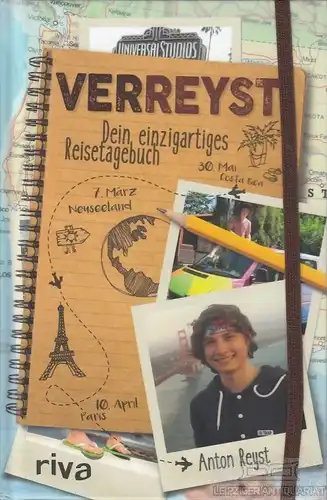 UNIVERSAL STUDIOS
VERREYST
Dein einzigartiges
Reisetagebuch
30. Mai
Costa Rica
7. März
Neuseeland
10. April
Paris
riva
Anton Reyst
LEIPZIGER ANTIQUARIAT